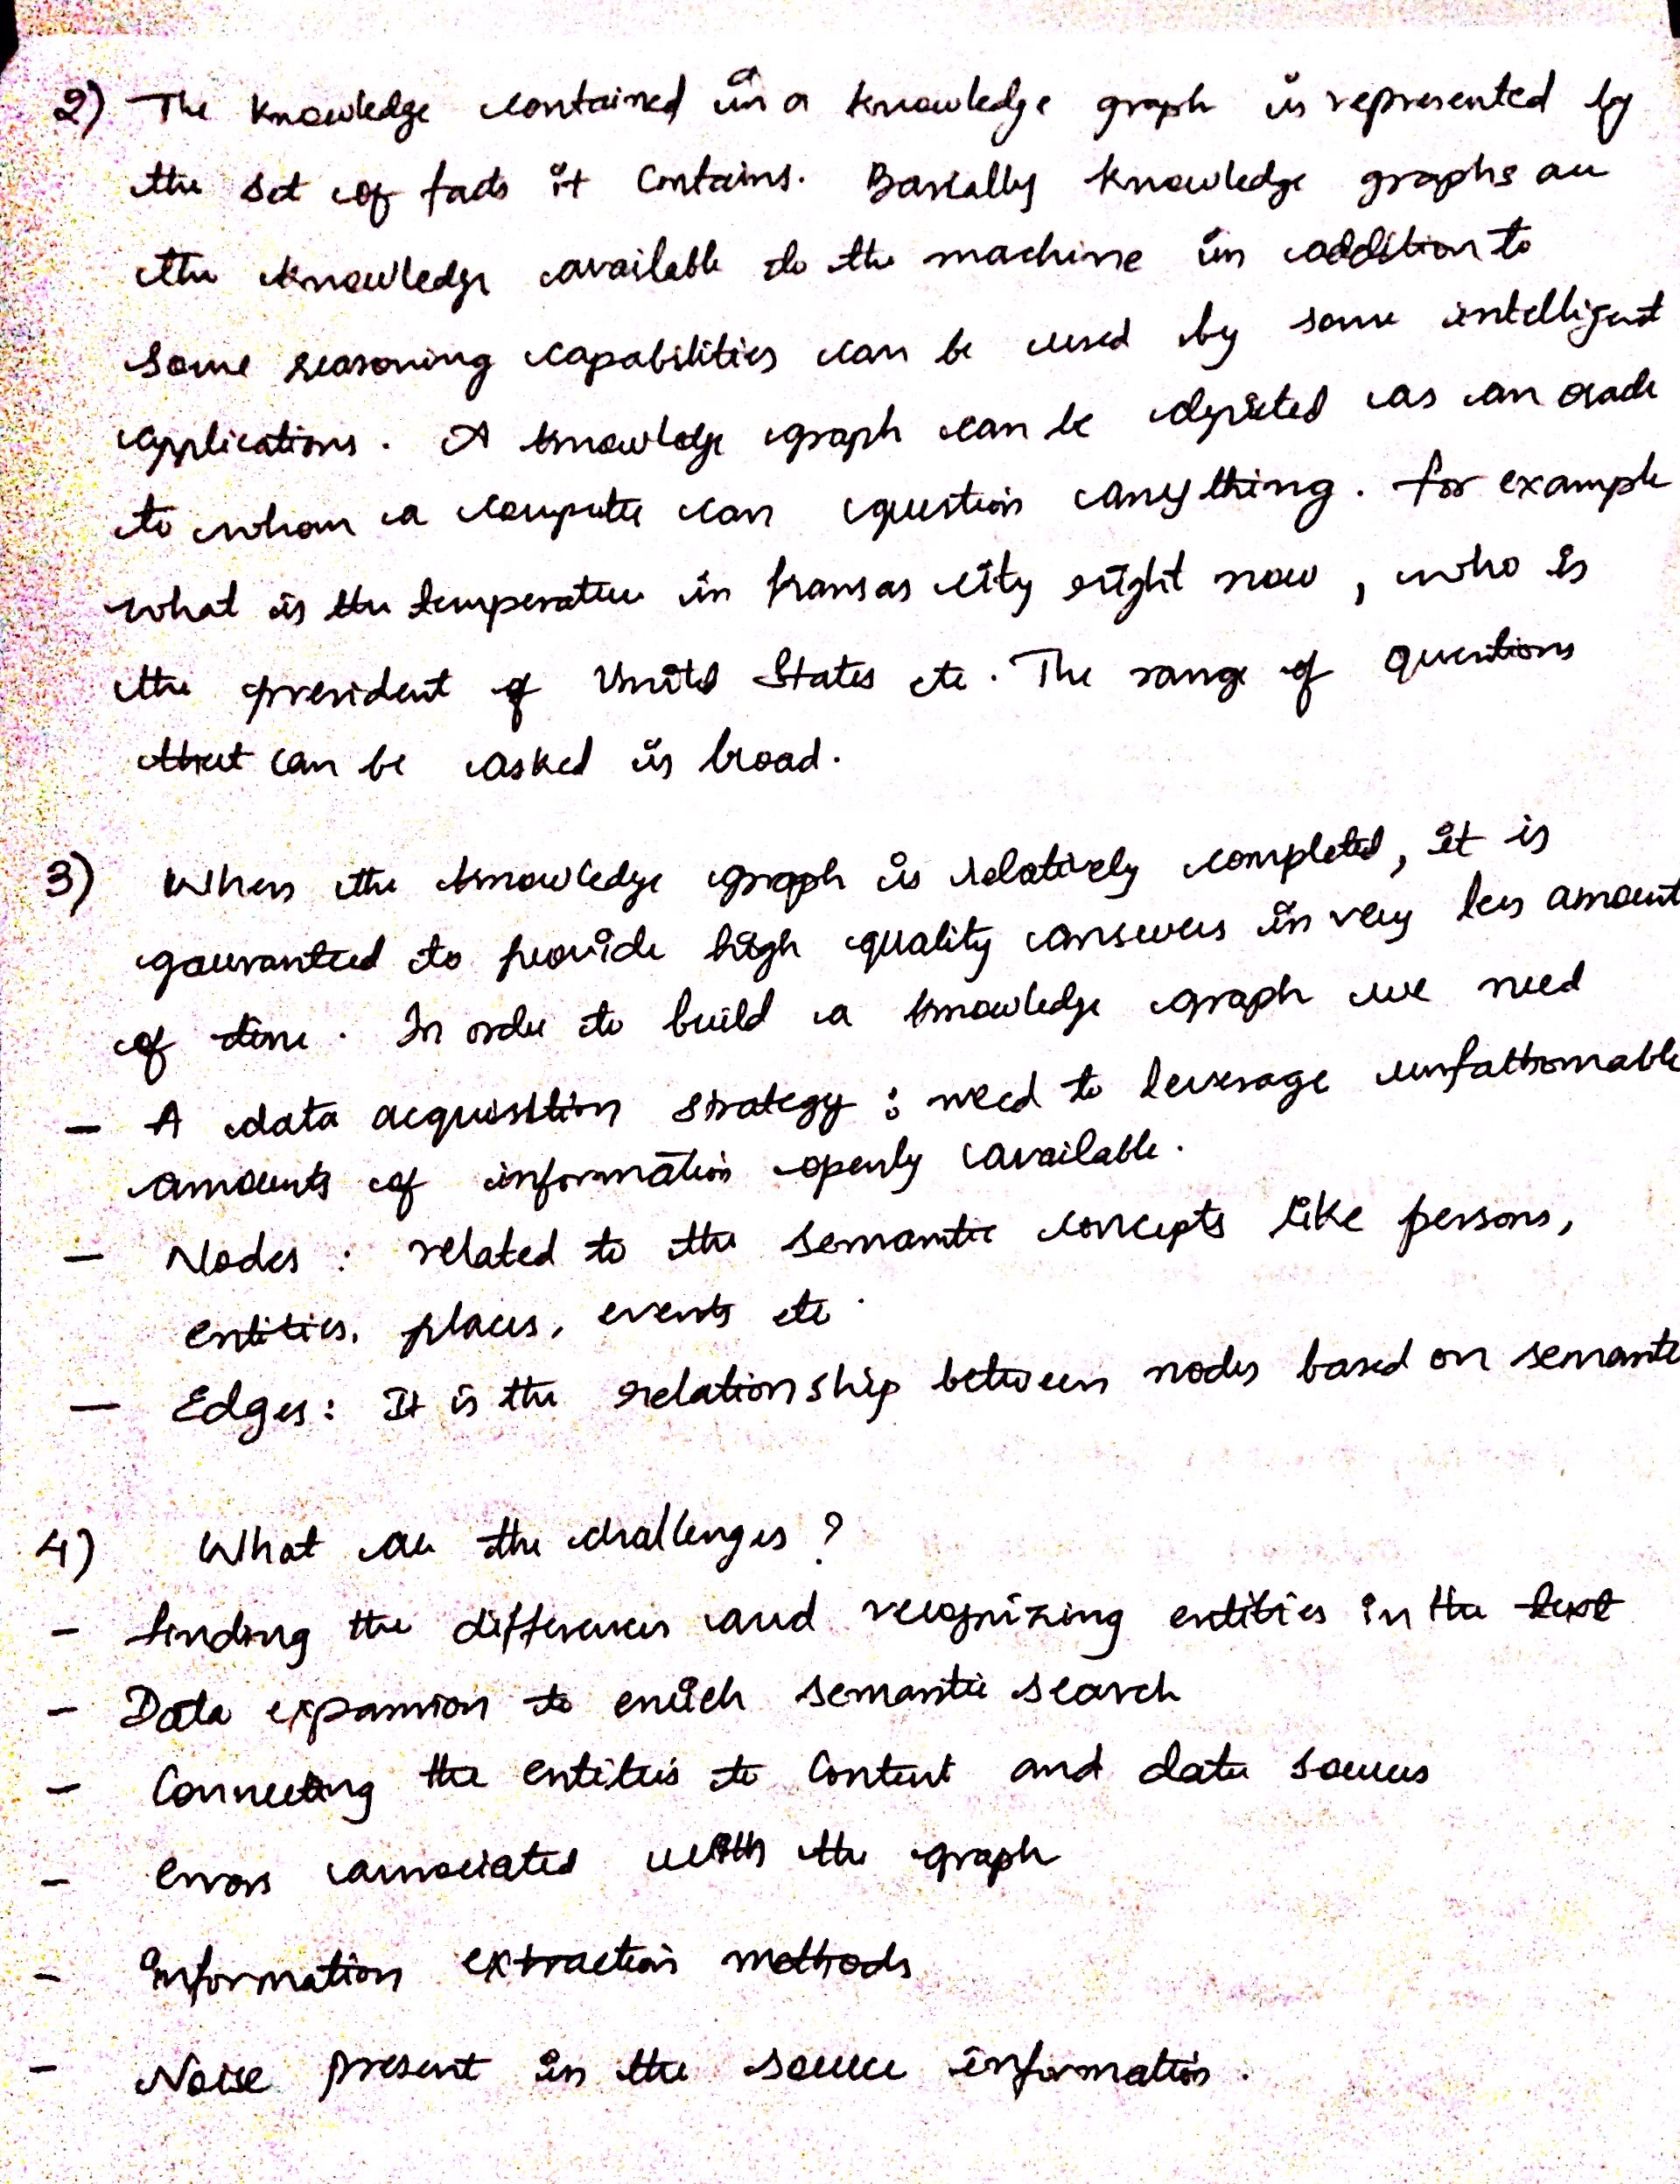 2) The knowledge contained in a knowledge graph is represented by
the set of facts it contains. Basically knowledge graphs are
the knowledge available to the machine in addition to
some reasoning capabilities can be used by some intelligent
applications. A knowledge graph can be depicted as an oracle
to whom a computer can question anything. For example
what is the temperature in Kansas city right now, who is
the president of United States etc. The range of questions
that can be asked is broad.
3) When the knowledge graph is relatively completed, it is
gauranteed to provide high quality answers in very less amount
of time. In order to build a knowledge graph we need
- A data acquisition strategy: need to leverage unfathomable
amounts of information openly available.
- Nodes: related to the semantic concepts like persons,
entities, places, events etc.
- Edges: It is the relationship between nodes based on semantic
4) What are the challenges?
- Finding the differences and recognizing entities in the text
- Data expansion to enrich semantic search
- Connecting the entities to content and data sources
- Errors associated with the graph
- Information extraction methods
- Noise present in the source information.